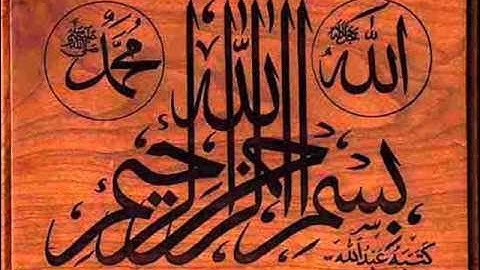 الله جل جلاله
محمد صلى الله عليه وسلم
بِسْمِ اللهِ الرَّحْمٰنِ الرَّحِيْمِ
كتبه عبدالله